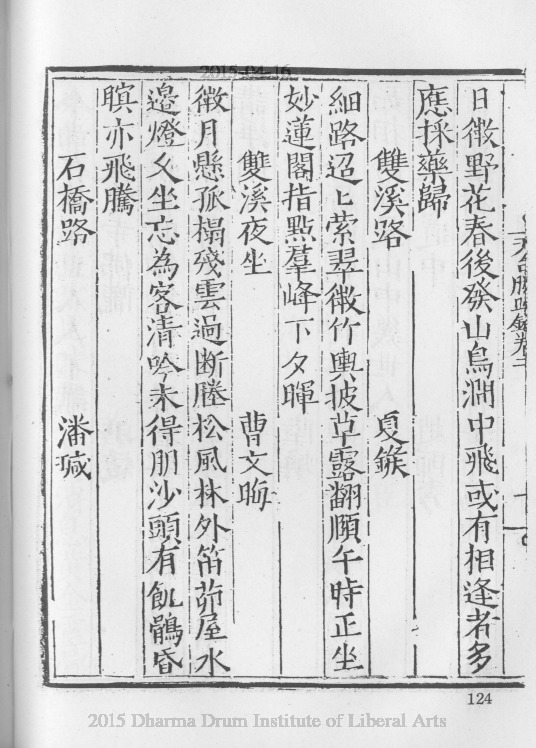 2015-04-16
日微野花春後發山鳥澗中飛或有相逢者多
應採藥歸
雙溪路 夏鍭
細路迢〻縈翠微竹輿披草露翻頋午時正坐
妙蓮閣指點羣峰下夕暉
雙溪夜坐 曹文晦
微月懸孤榻殘雲過断塍松風林外笛茆屋水
邉燈久坐忘為客清吟未得朋沙頭有飢鶻昏
瞑亦飛騰
石橋路 潘瑊
124
2015 Dharma Drum Institute of Liberal Arts